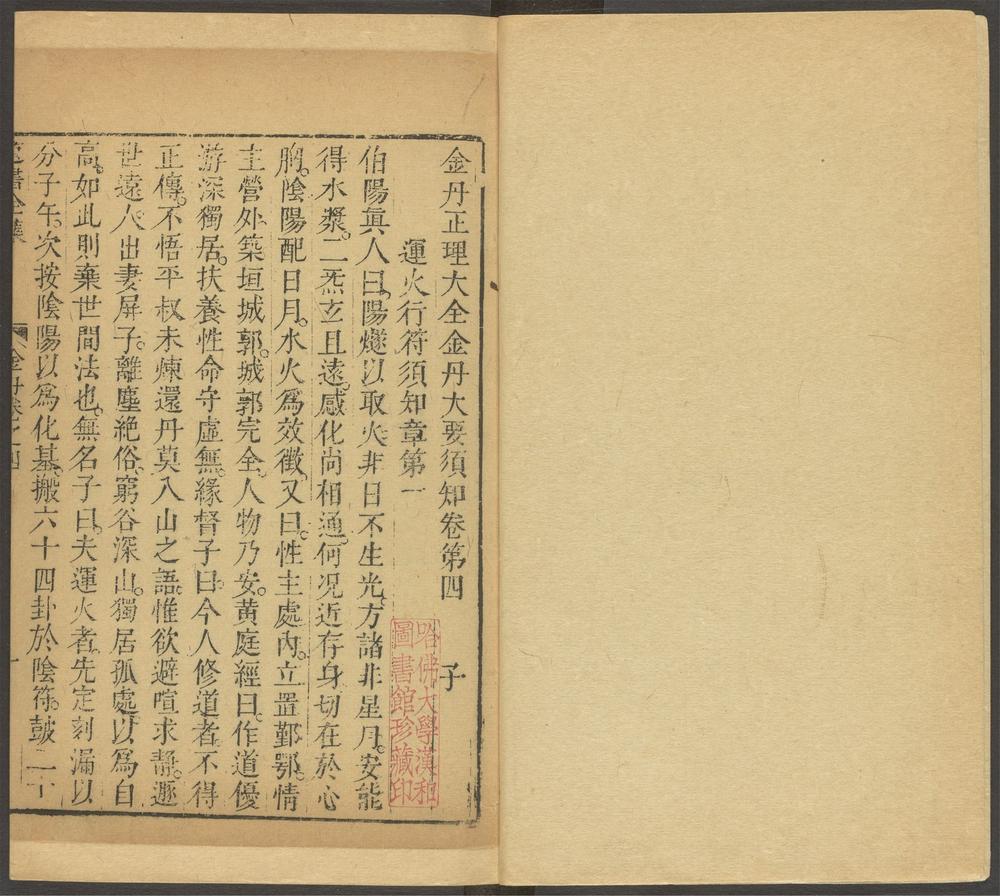 金丹正理大全金丹大要須知卷第四　子
運火行符須知章第一
伯陽眞人曰。陽燧以取火。非日不生光。方諸非星月。安能
得水漿。二炁玄且遠。感化尚相通。何況近存身。切在於心
胸。陰陽配日月。水火爲效徵。又曰。性主處內。立置鄞鄂。情
主營外。築垣城郭。城郭完全。人物乃安。黄庭經曰。作道優
游深獨居。扶養性命守虛無。緣督子曰。今人修道者。不得
正傳。不悟平叔未煉還丹莫入山之語。惟欲避喧求靜。遯
世遠人。出妻屏子。離塵絶俗。窮谷深山。獨居孤處。以爲自
高。如此則棄世間法也。無名子曰。夫運火者。先定刻漏以
分子午。次按陰陽以爲化基。搬六十四卦於陰符。鼓二十
金丹卷之四
哈佛大學漢和
圖書館珍藏印